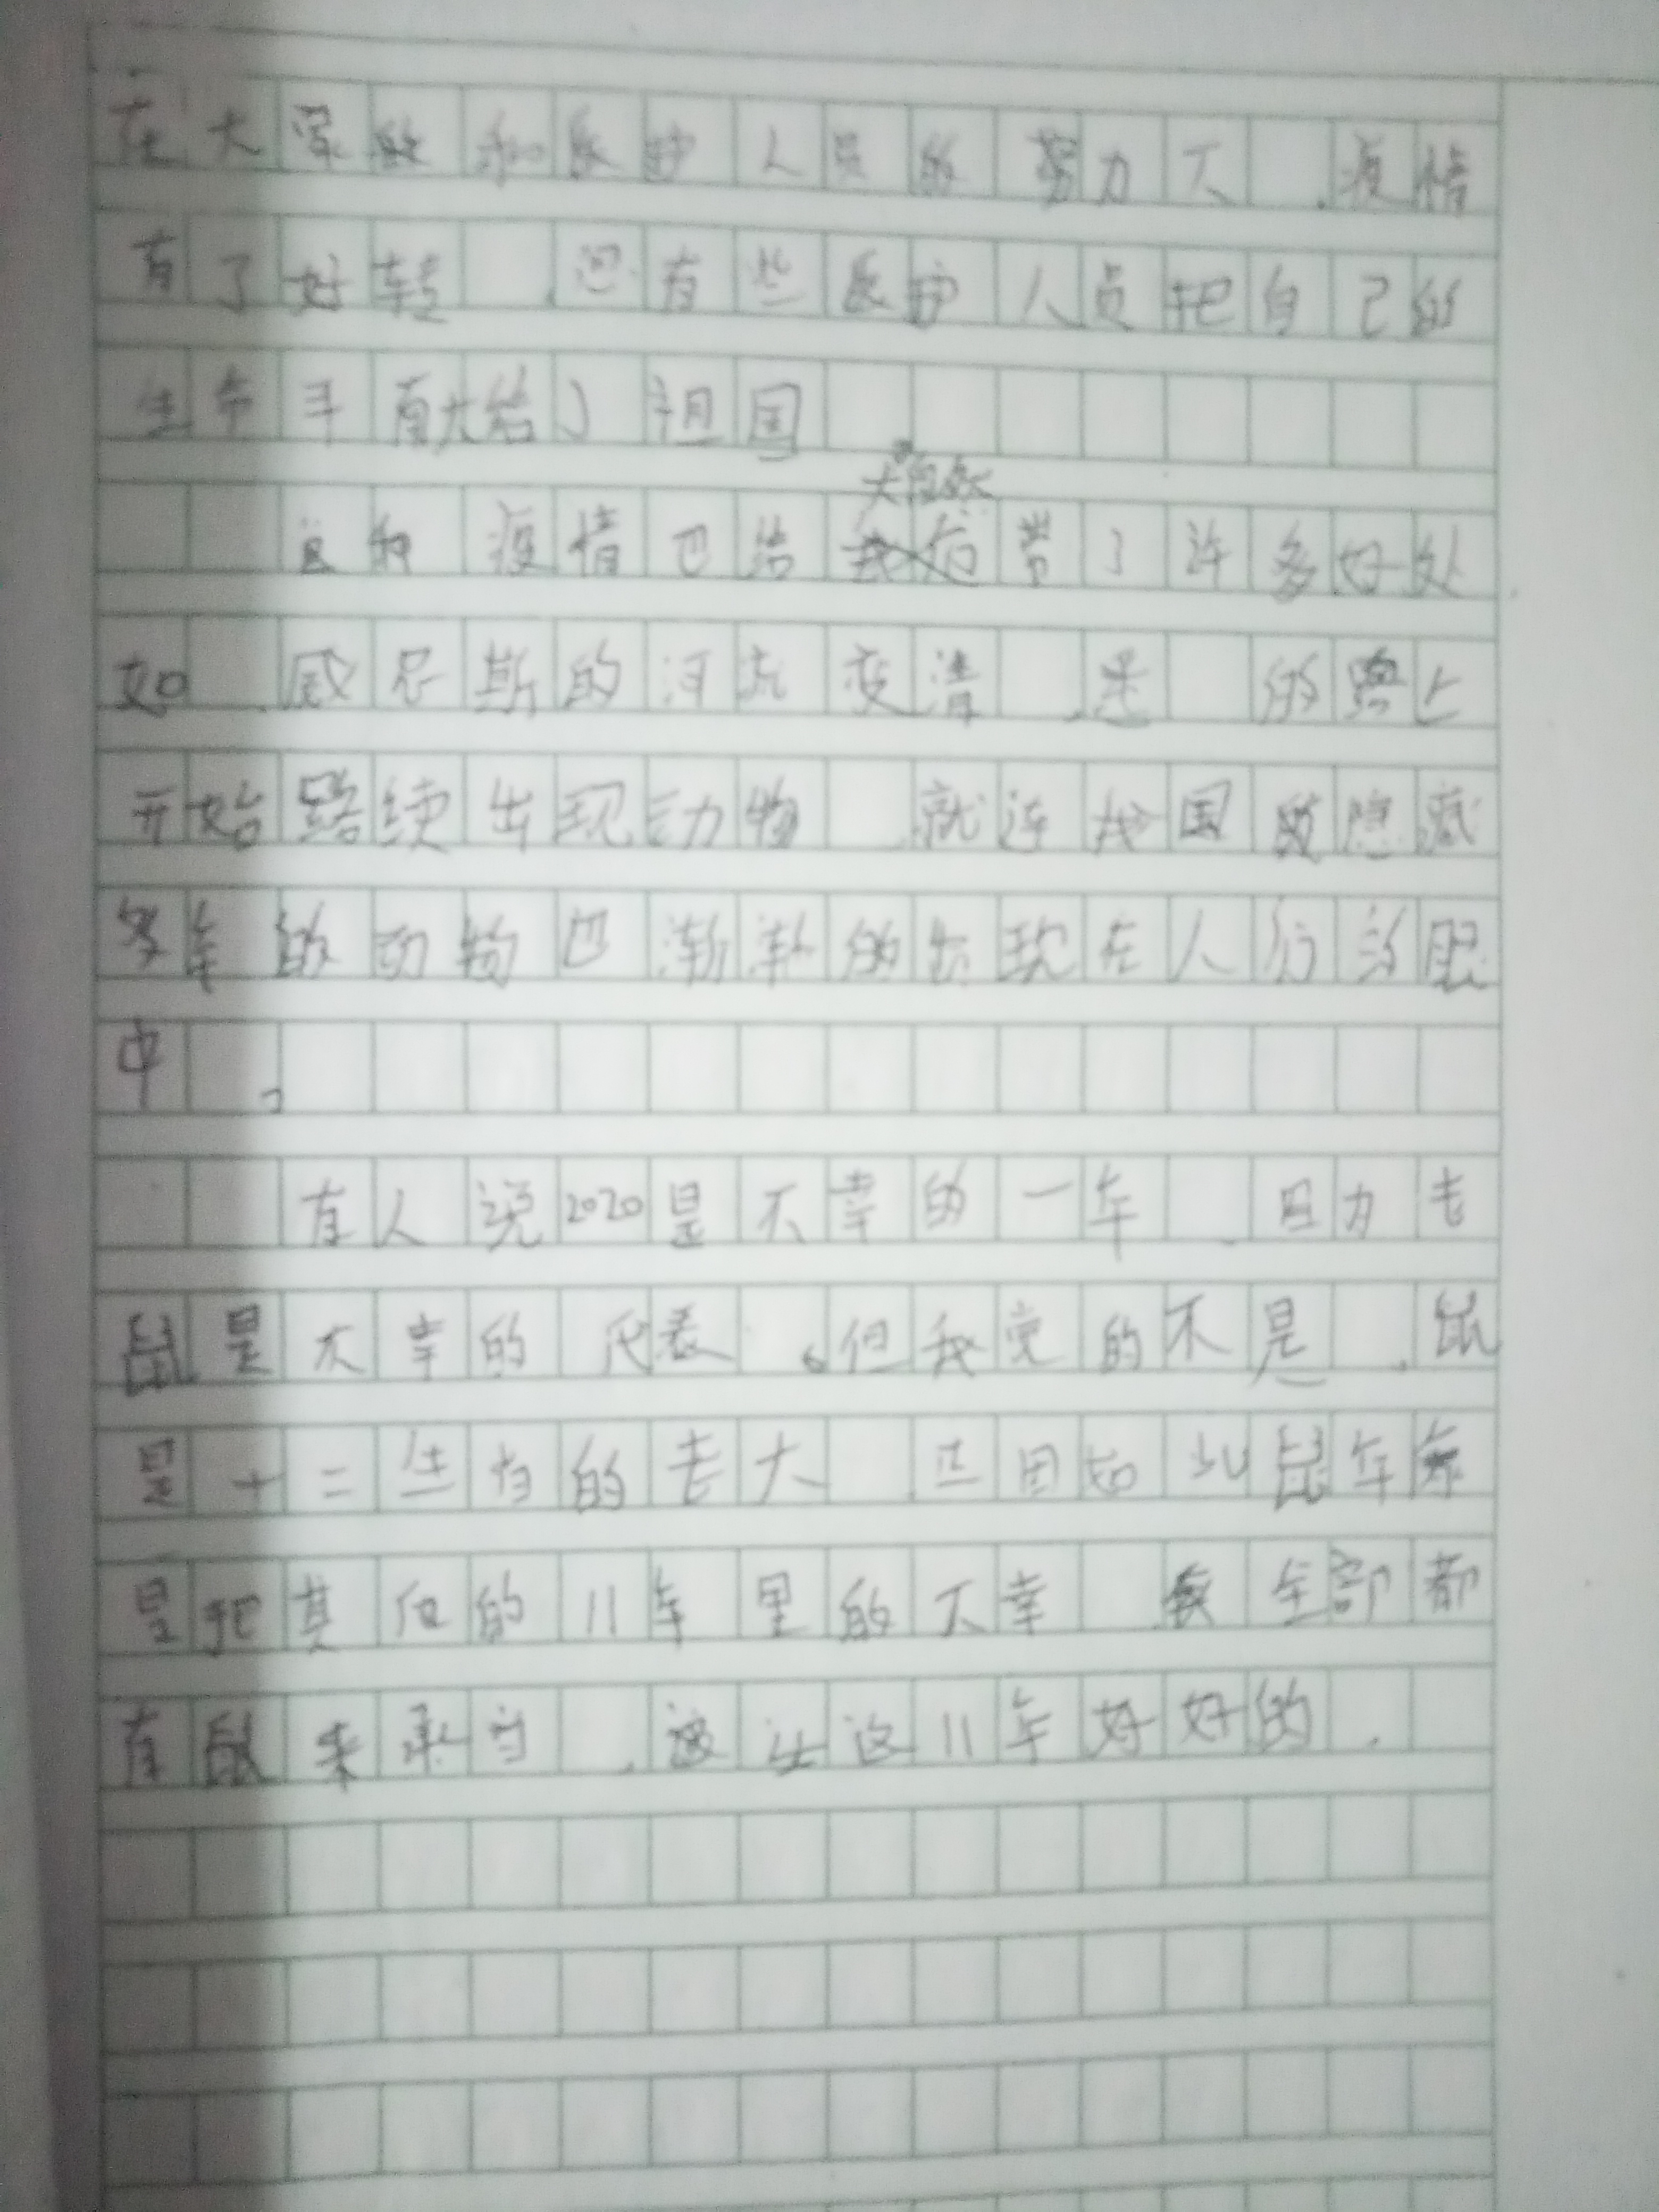 在大家的和医护人员的努力下,疫情
有了好转,还有些医护人员把自己的
生命奉献给了祖国
大自然
疫情也给带了许多好处,
如,威尼斯的河流变清,的路上
开始路续出现动物,就连我国隐藏
多年的动物也渐渐的出现在人们的眼
中。
有人说2020是不幸的一年,因为老
鼠是不幸的代表。但我觉的不是,鼠
是十二生肖的老大,正因如此鼠年
是把其他的11年里的不幸,全部都
有鼠来承当,让这11年好好的.